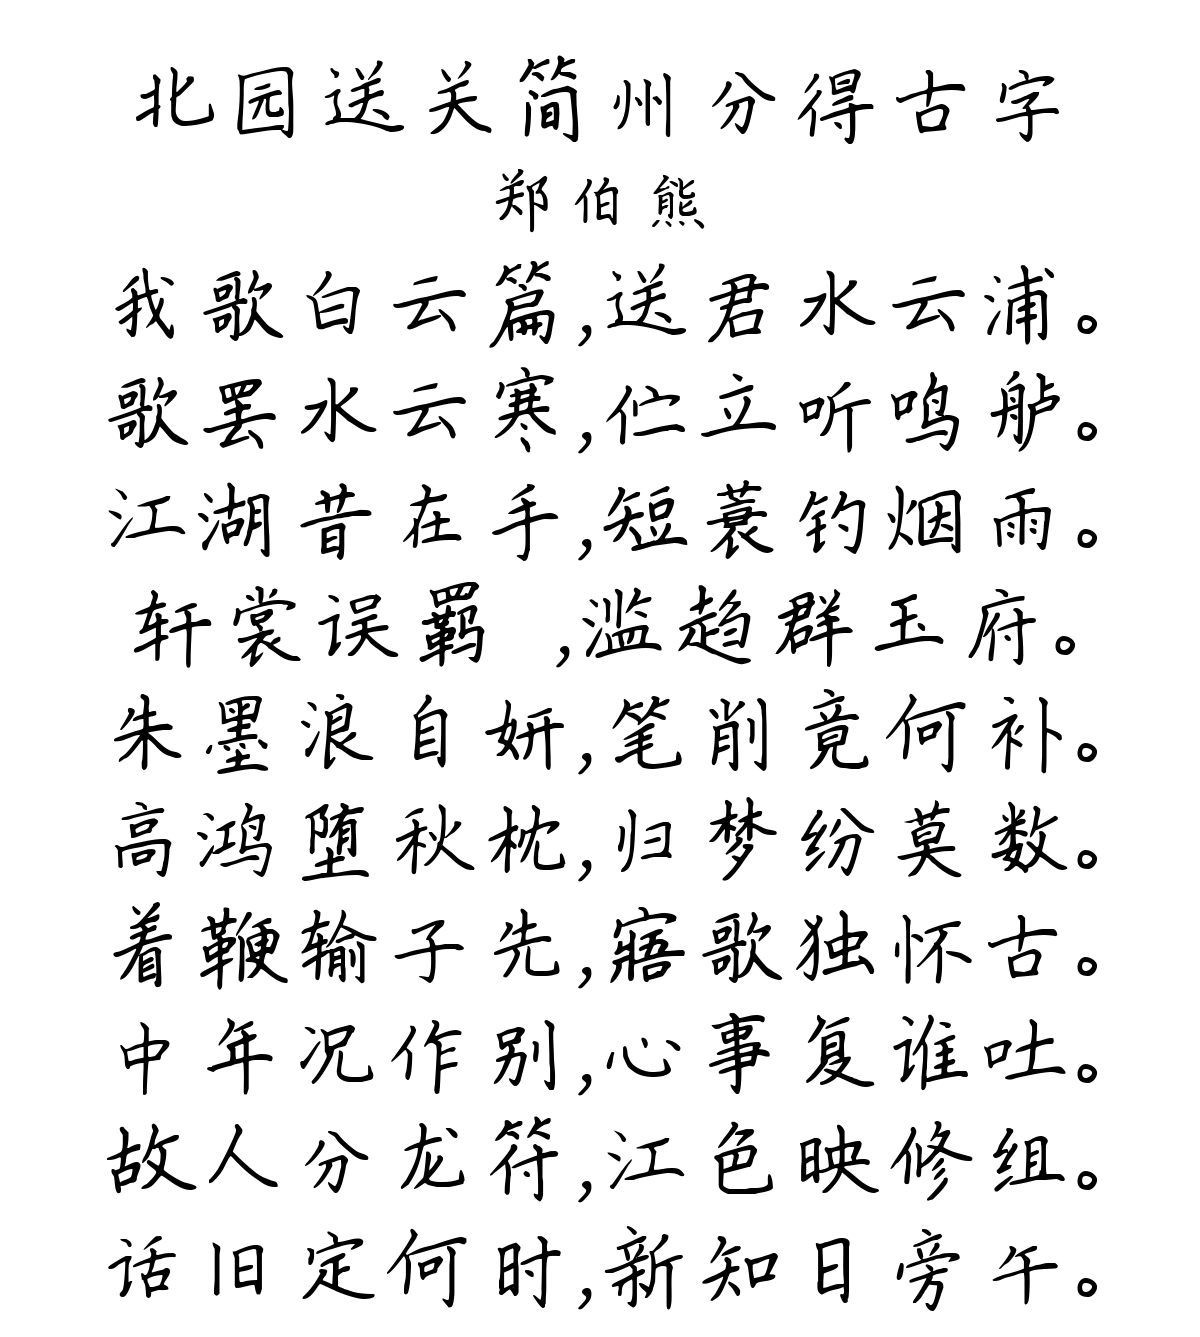 北园送关简州分得古字
郑伯熊
我歌白云篇,送君水云浦。
歌罢水云寒,伫立听鸣舻。
江湖昔在手,短蓑钓烟雨。
轩裳误羁 ,滥趋群玉府。
朱墨浪自妍,笔削竟何补。
高鸿堕秋枕,归梦纷莫数。
着鞭输子先,寤歌独怀古。
中年况作别,心事复谁吐。
故人分龙符,江色映修组。
话旧定何时,新知日旁午。